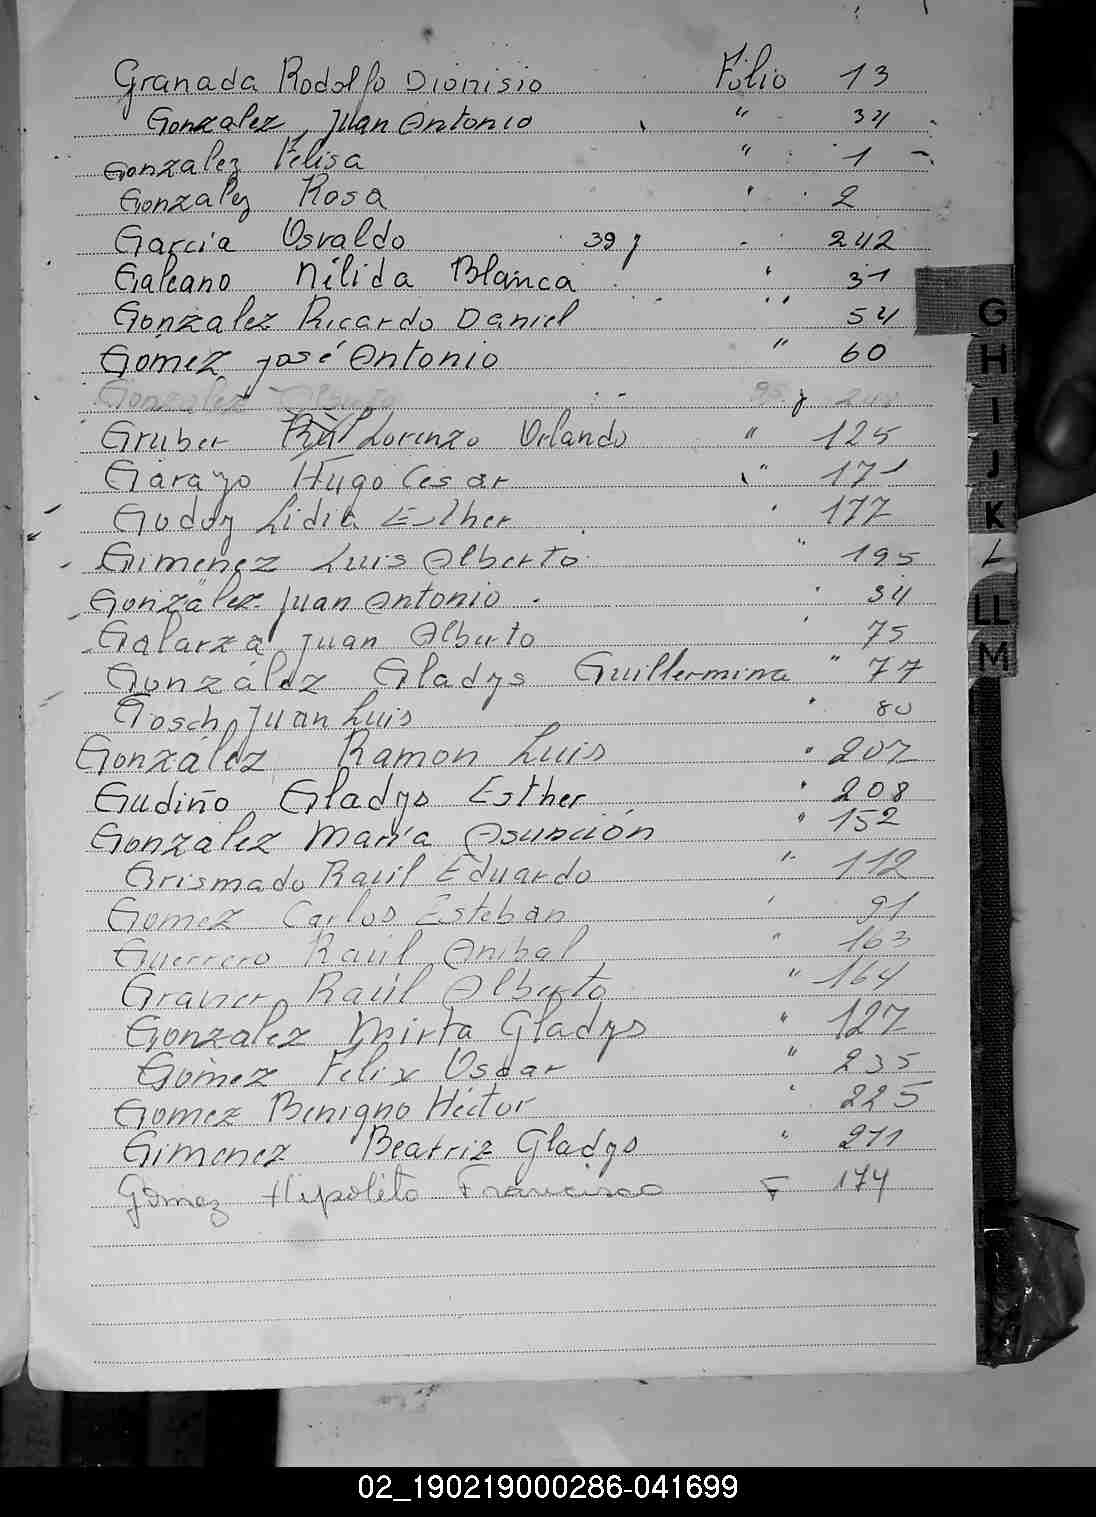 Granada Rodolfo Dionisio Folio 13
Gonzalez, Juan Antonio " 34
Gonzalez Felisa " 1
Gonzalez Rosa " 2
García Osvaldo 39 y " 242
Galeano Nélida Blanca " 31
Gonzalez Ricardo Daniel " 54
Gómez José Antonio " 60
Gonzalez y
Gruber Lorenzo Orlando " 125
Garayo Hugo César " 171
Godoy Lidia Esther " 177
Gimenez Luis Alberto " 195
González Juan Antonio " 34
Galarza Juan Alberto " 75
González Gladys Guillermina " 77
Gosch, Juan Luis " 80
González Ramon Luis " 207
Gudiño Gladys Esther " 208
González María Asunción " 152
Grismado Raúl Eduardo " 112
Gomez Carlos Esteban " 91
Guerrero Raúl Anibal " 163
Graner, Raúl Alberto " 164
Gonzalez Mirta Gladys " 127
Gómez Felix Oscar " 235
Gomez Benigno Héctor " 225
Gimenez Beatriz Gladys " 271
Gómez Hipolito Francisco F 174
G
H
I
J
K
L
LL
M
02_190219000286-041699